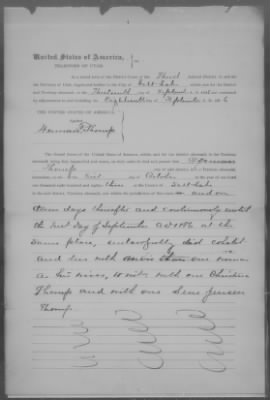 United States of America,
TERRITORY OF UTAH.
At a stated term of the District Court of the Third Judicial District in and for
the Territory of Utah, begun and holden in the City of Salt Lake within and for the District
and Territory aforesaid, on the Thirteenth day of September A. D. 188
by adjournment to and including the Eighteenth day of September A. D. 188 6
THE UNITED STATES OF AMERICA
against
Herman F. Thorup
The Grand Jurors of the United States of America, within and for the District and Territory
aforesaid, being duly impaneled and sworn, on their oaths do find and present that
Thorup late of said District, in the Territory
aforesaid, to-wit: on the first day of October in the year of our Lord
one thousand eight hundred and eighty three at the County of Salt Lake
in the said District, Territory aforesaid, and within the jurisdiction of this Court, on and on
days thereafter and continuously until
the first day of September AD 1886 at the
same place, unlawfully did cohabit
and live with more than one woman
as his wives, to wit, with one Christina
Thorup and with one Sene Jensen
Thorup.